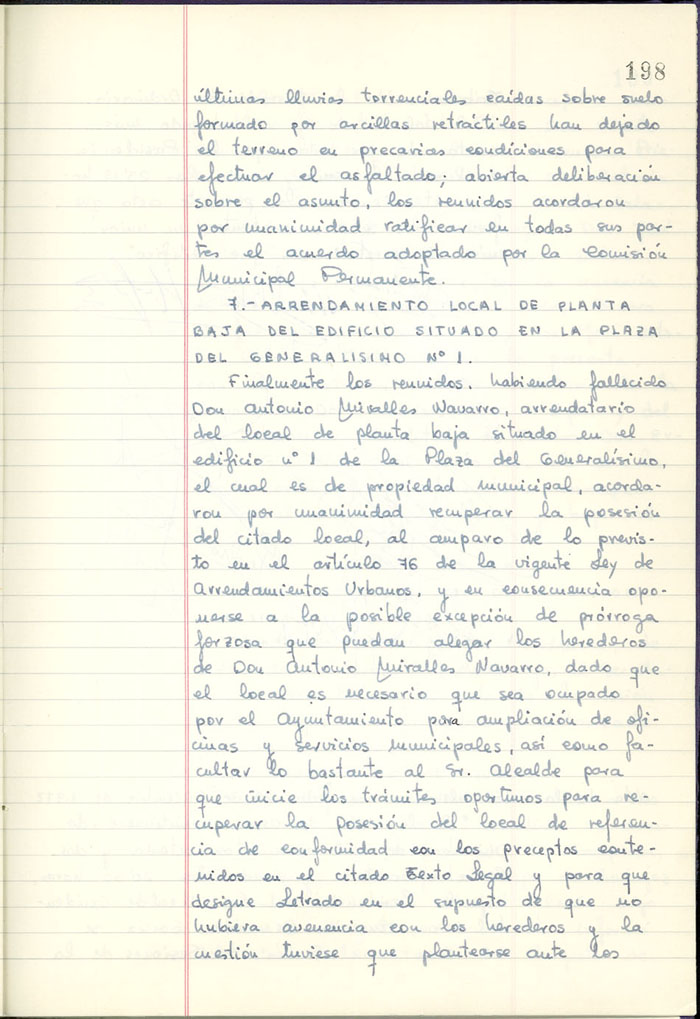 198
últimas lluvias torrenciales caídas sobre suelo
formado por arcillas retráctiles han dejado
el terreno en precarias condiciones para
efectuar el asfaltado; abierta deliberación
sobre el asunto, los reunidos acordaron
por unanimidad ratificar en todas sus par-
tes el acuerdo adoptado por la Comisión
Municipal Permanente.
7.- ARRENDAMIENTO LOCAL DE PLANTA
BAJA DEL EDIFICIO SITUADO EN LA PLAZA
DEL GENERALISIMO Nº 1.
Finalmente los reunidos, habiendo fallecido
Don Antonio Miralles Navarro, arrendatario
del local de planta baja situado en el
edificio nº 1 de la Plaza del Generalísimo,
el cual es de propiedad municipal, acorda-
ron por unanimidad recuperar la posesión
del citado local, al amparo de lo previs-
to en el artículo 76 de la vigente Ley de
Arrendamientos Urbanos, y en consecuencia opo-
nerse a la posible excepción de prórroga
forzosa que puedan alegar los herederos
de Don Antonio Miralles Navarro, dado que
el local es necesario que sea ocupado
por el Ayuntamiento para ampliación de ofi-
cinas y servicios municipales, así como fa-
cultar lo bastante al Sr. Alcalde para
que inicie los trámites oportunos para re-
cuperar la posesión del local de referen-
cia de conformidad con los preceptos conte-
nidos en el citado Texto Legal y para que
designe Letrado en el supuesto de que no
hubiera avenencia con los herederos y la
cuestión tuviese que plantearse ante los